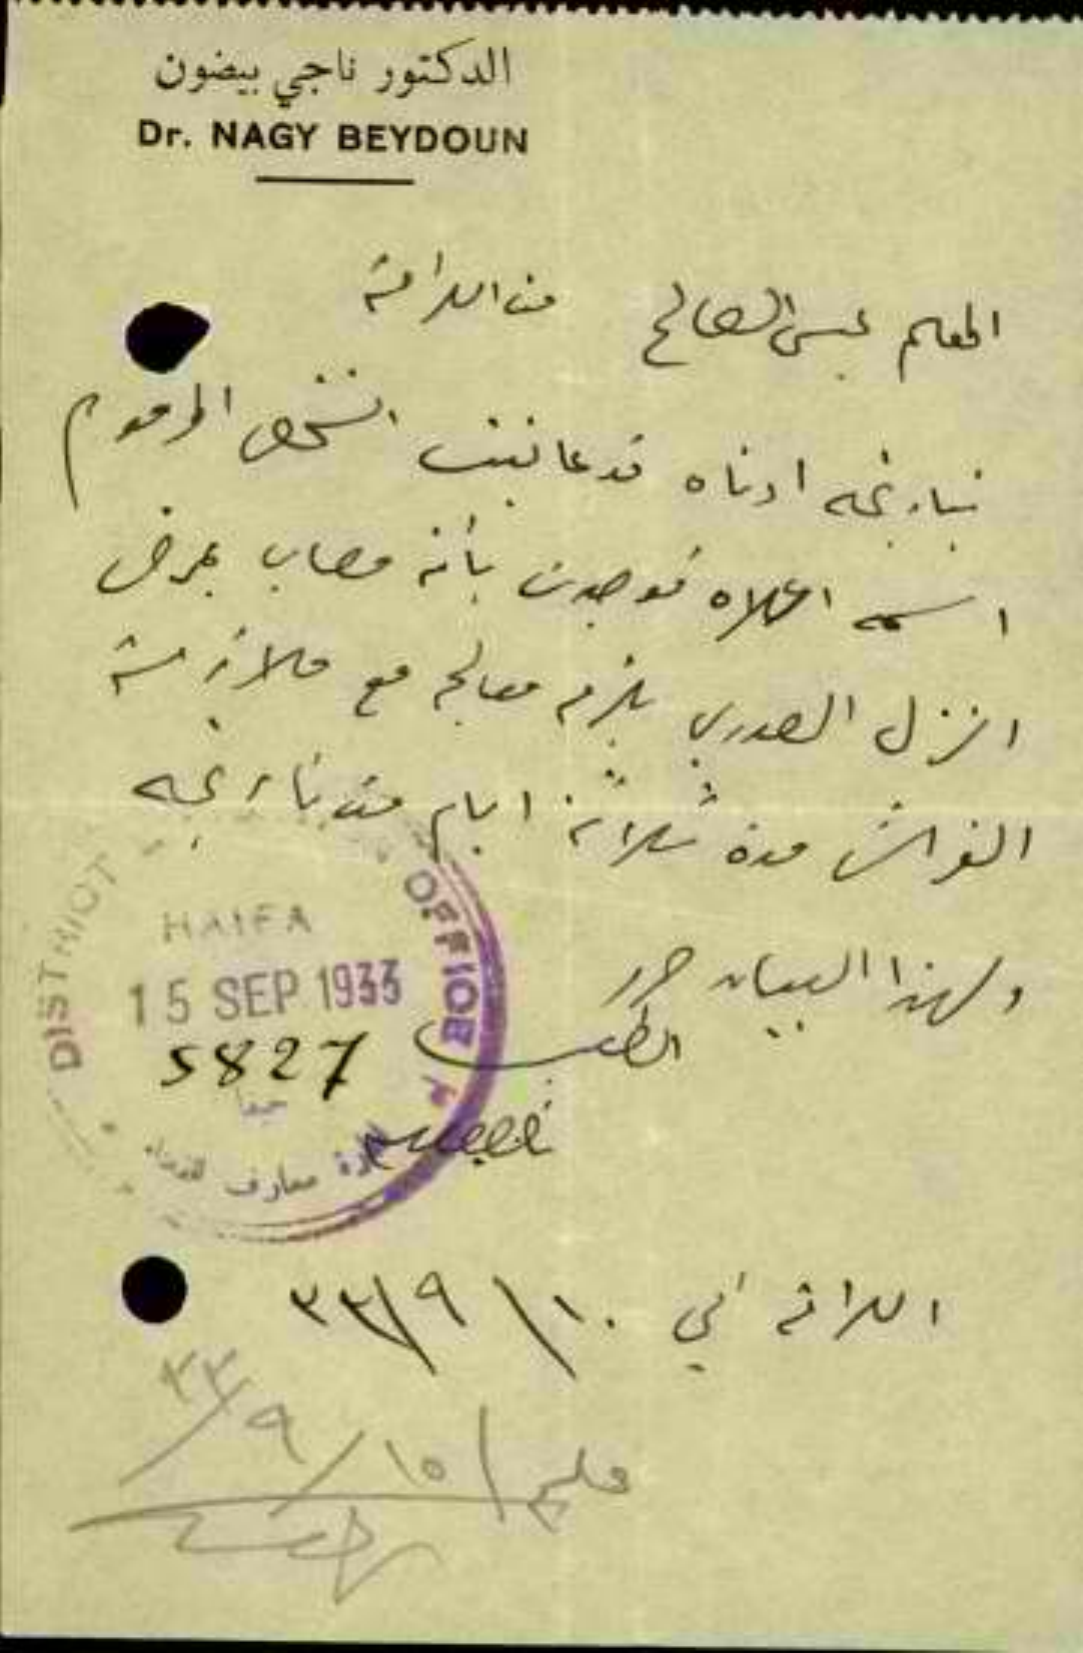 الدكتور ناجي بيضون
Dr. NAGY BEYDOUN
المعلم عيسى الصالح من الرامة
بتاريخه ادناه قد عاينت الشخص المرقوم
اسمه اعلاه فوجدت بأنه مصاب بمرض
النزل الصدري يلزم معالجه مع ملازمة
الفراش مدة ثلاثة ايام من تاريخه
ولهذا البيان حرر
الطبيب
DISTRICT OFFICE
HAIFA
15 SEP 1933
5827
حيفا
معارف
الرامة في ١٠/٩/٣٣
١٥/٩/٣٣